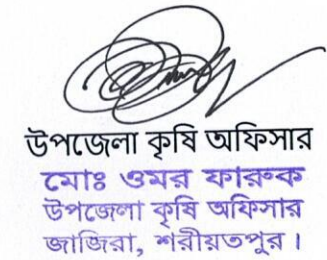 উপজেলা কৃষি অফিসার
মোঃ ওমর ফারুক
উপজেলা কৃষি অফিসার
জাজিরা, শরীয়তপুর।